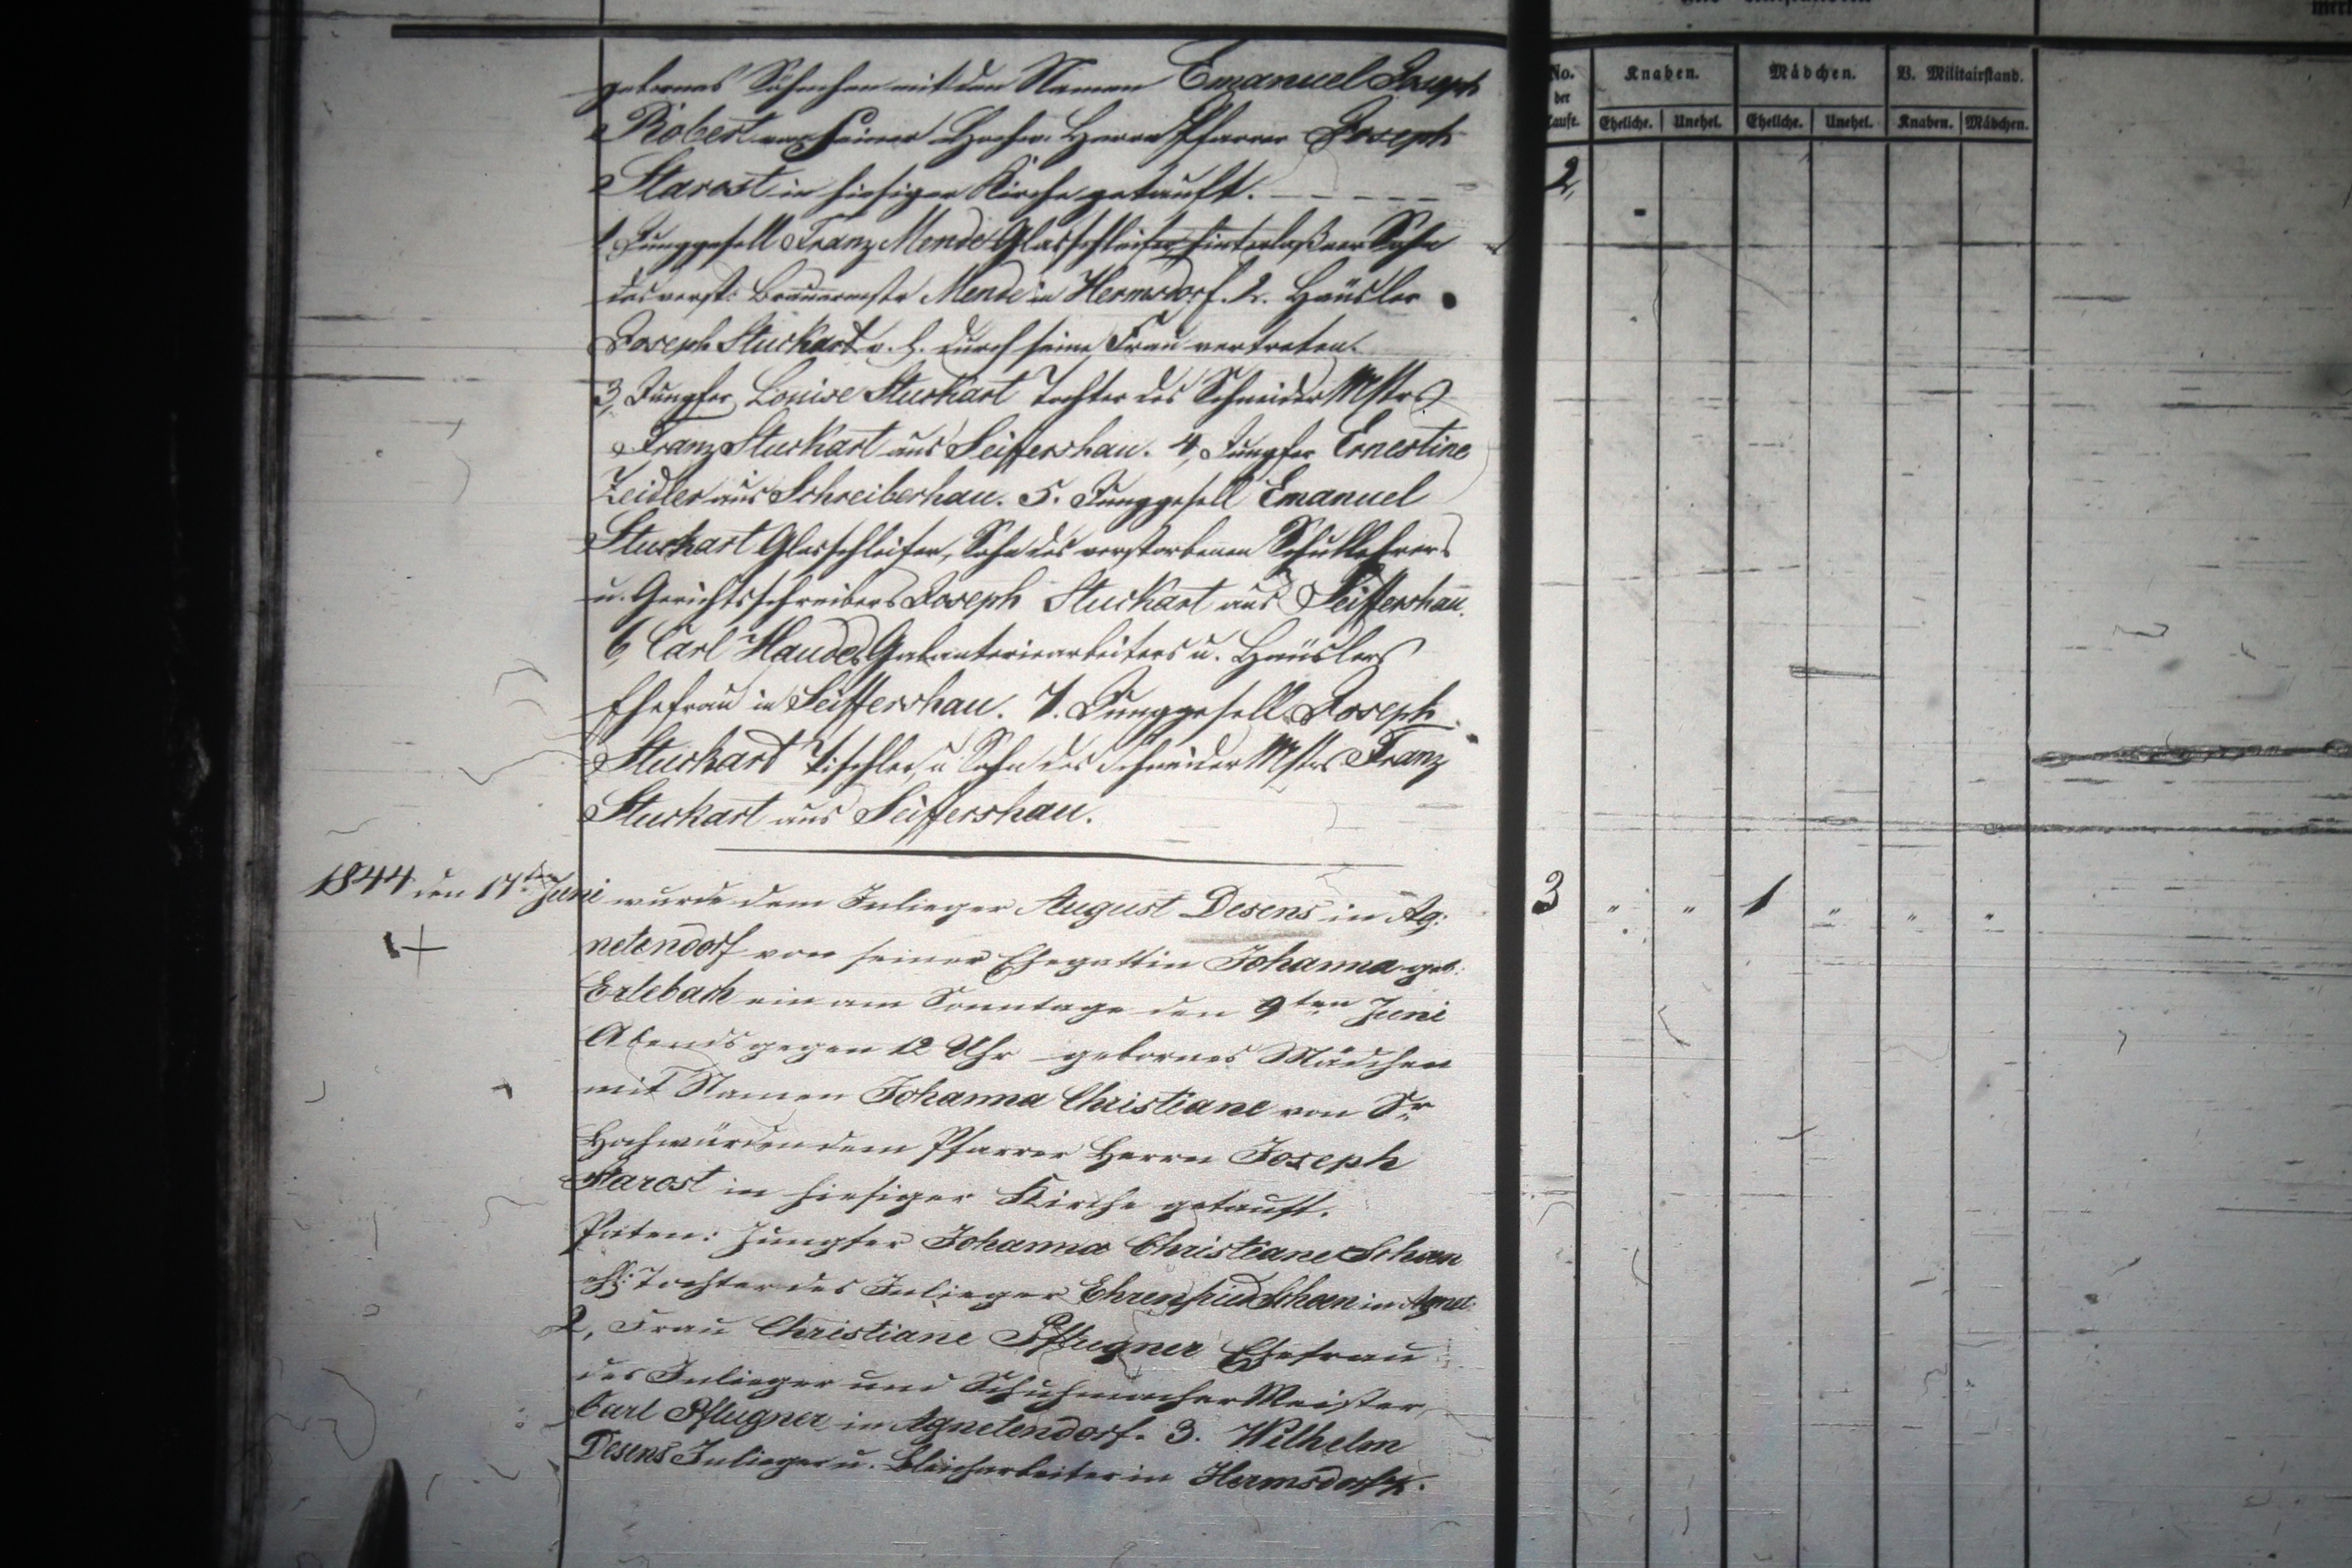 gebornes Söhnchen mit den Namen Emanuel Joseph
Robert von Seiner Hochw. Herrn Pfarrer Joseph
Starost in hiesiger Kirche getauft.
1 Junggesell Franz Mende Glasschleifer hinterlaßner Sohn
des verst: Brauermstr Mende in Hermsdorf. 2. Häusler
Joseph Sturkart v. h. durch seine Frau vertreten.
3, Jungfer Louise Sturkart Tochter des Schneider Mstrs
Franz Sturkart aus Seiffershau. 4, Jungfer Ernestine
Zeidler aus Schreiberhau. 5. Junggesell Emanuel
Sturkart Glasschleifer, Sohn des verstorbenen Schullehrers
u. Gerichtsschreibers Joseph Sturkart aus Seiffershau.
6, Carl Haudes Galanteriearbeiters u. Häuslers
Ehefrau in Seiffershau. 7. Junggesell Joseph
Sturkart Tischler, u Sohn des Schneider Mstrs Franz
Sturkart aus Seiffershau.
1844 den 17ten Juni wurde dem Inlieger August Desens in Ag:
netendorf von seiner Ehegattin Johanna geb:
Erlebach ein am Sonntage den 9ten Juni
Abends gegen 12 Uhr gebornes Mädchen
mit Namen Johanna Christiane von Sr
Hochwürden dem Pfarrer Herrn Joseph
Starost in hiesiger Kirche getauft.
Paten: Jungfer Johanna Christiane Schoen
ehl: Tochter des Inlieger Ehrenfried Schoen in Agnet:
2, Frau Christiane Pflugner Ehefrau
des Inlieger und Schuhmacher Meister
Carl Pflugner in Agnetendorf. 3. Wilhelm
Desens Inlieger u. Bleicharbeiter in Hermsdorf k.
No. der Taufe.
Knaben. Mädchen. V. Militairstand.
Eheliche. Unehel. Eheliche. Unehel. Knaben. Mädchen.
2,
3 " " 1 " " "